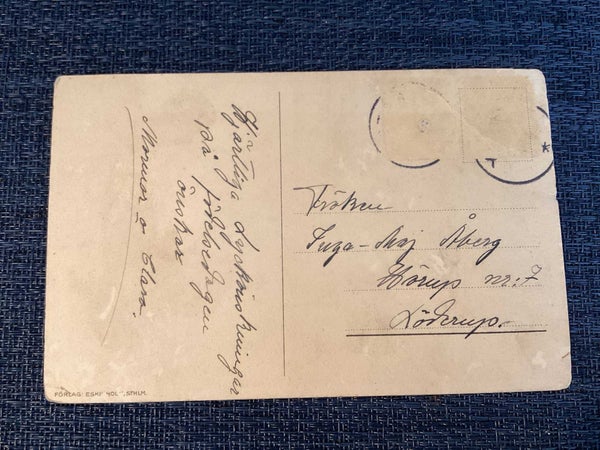 Hjärtliga Lyckönskningar
på födelsedagen
önskar
Mormor o Clara.
Fröken
Inga-Maj Åberg
Hörup nr. 7
Löderup.
FÖRLAG: STHLM.